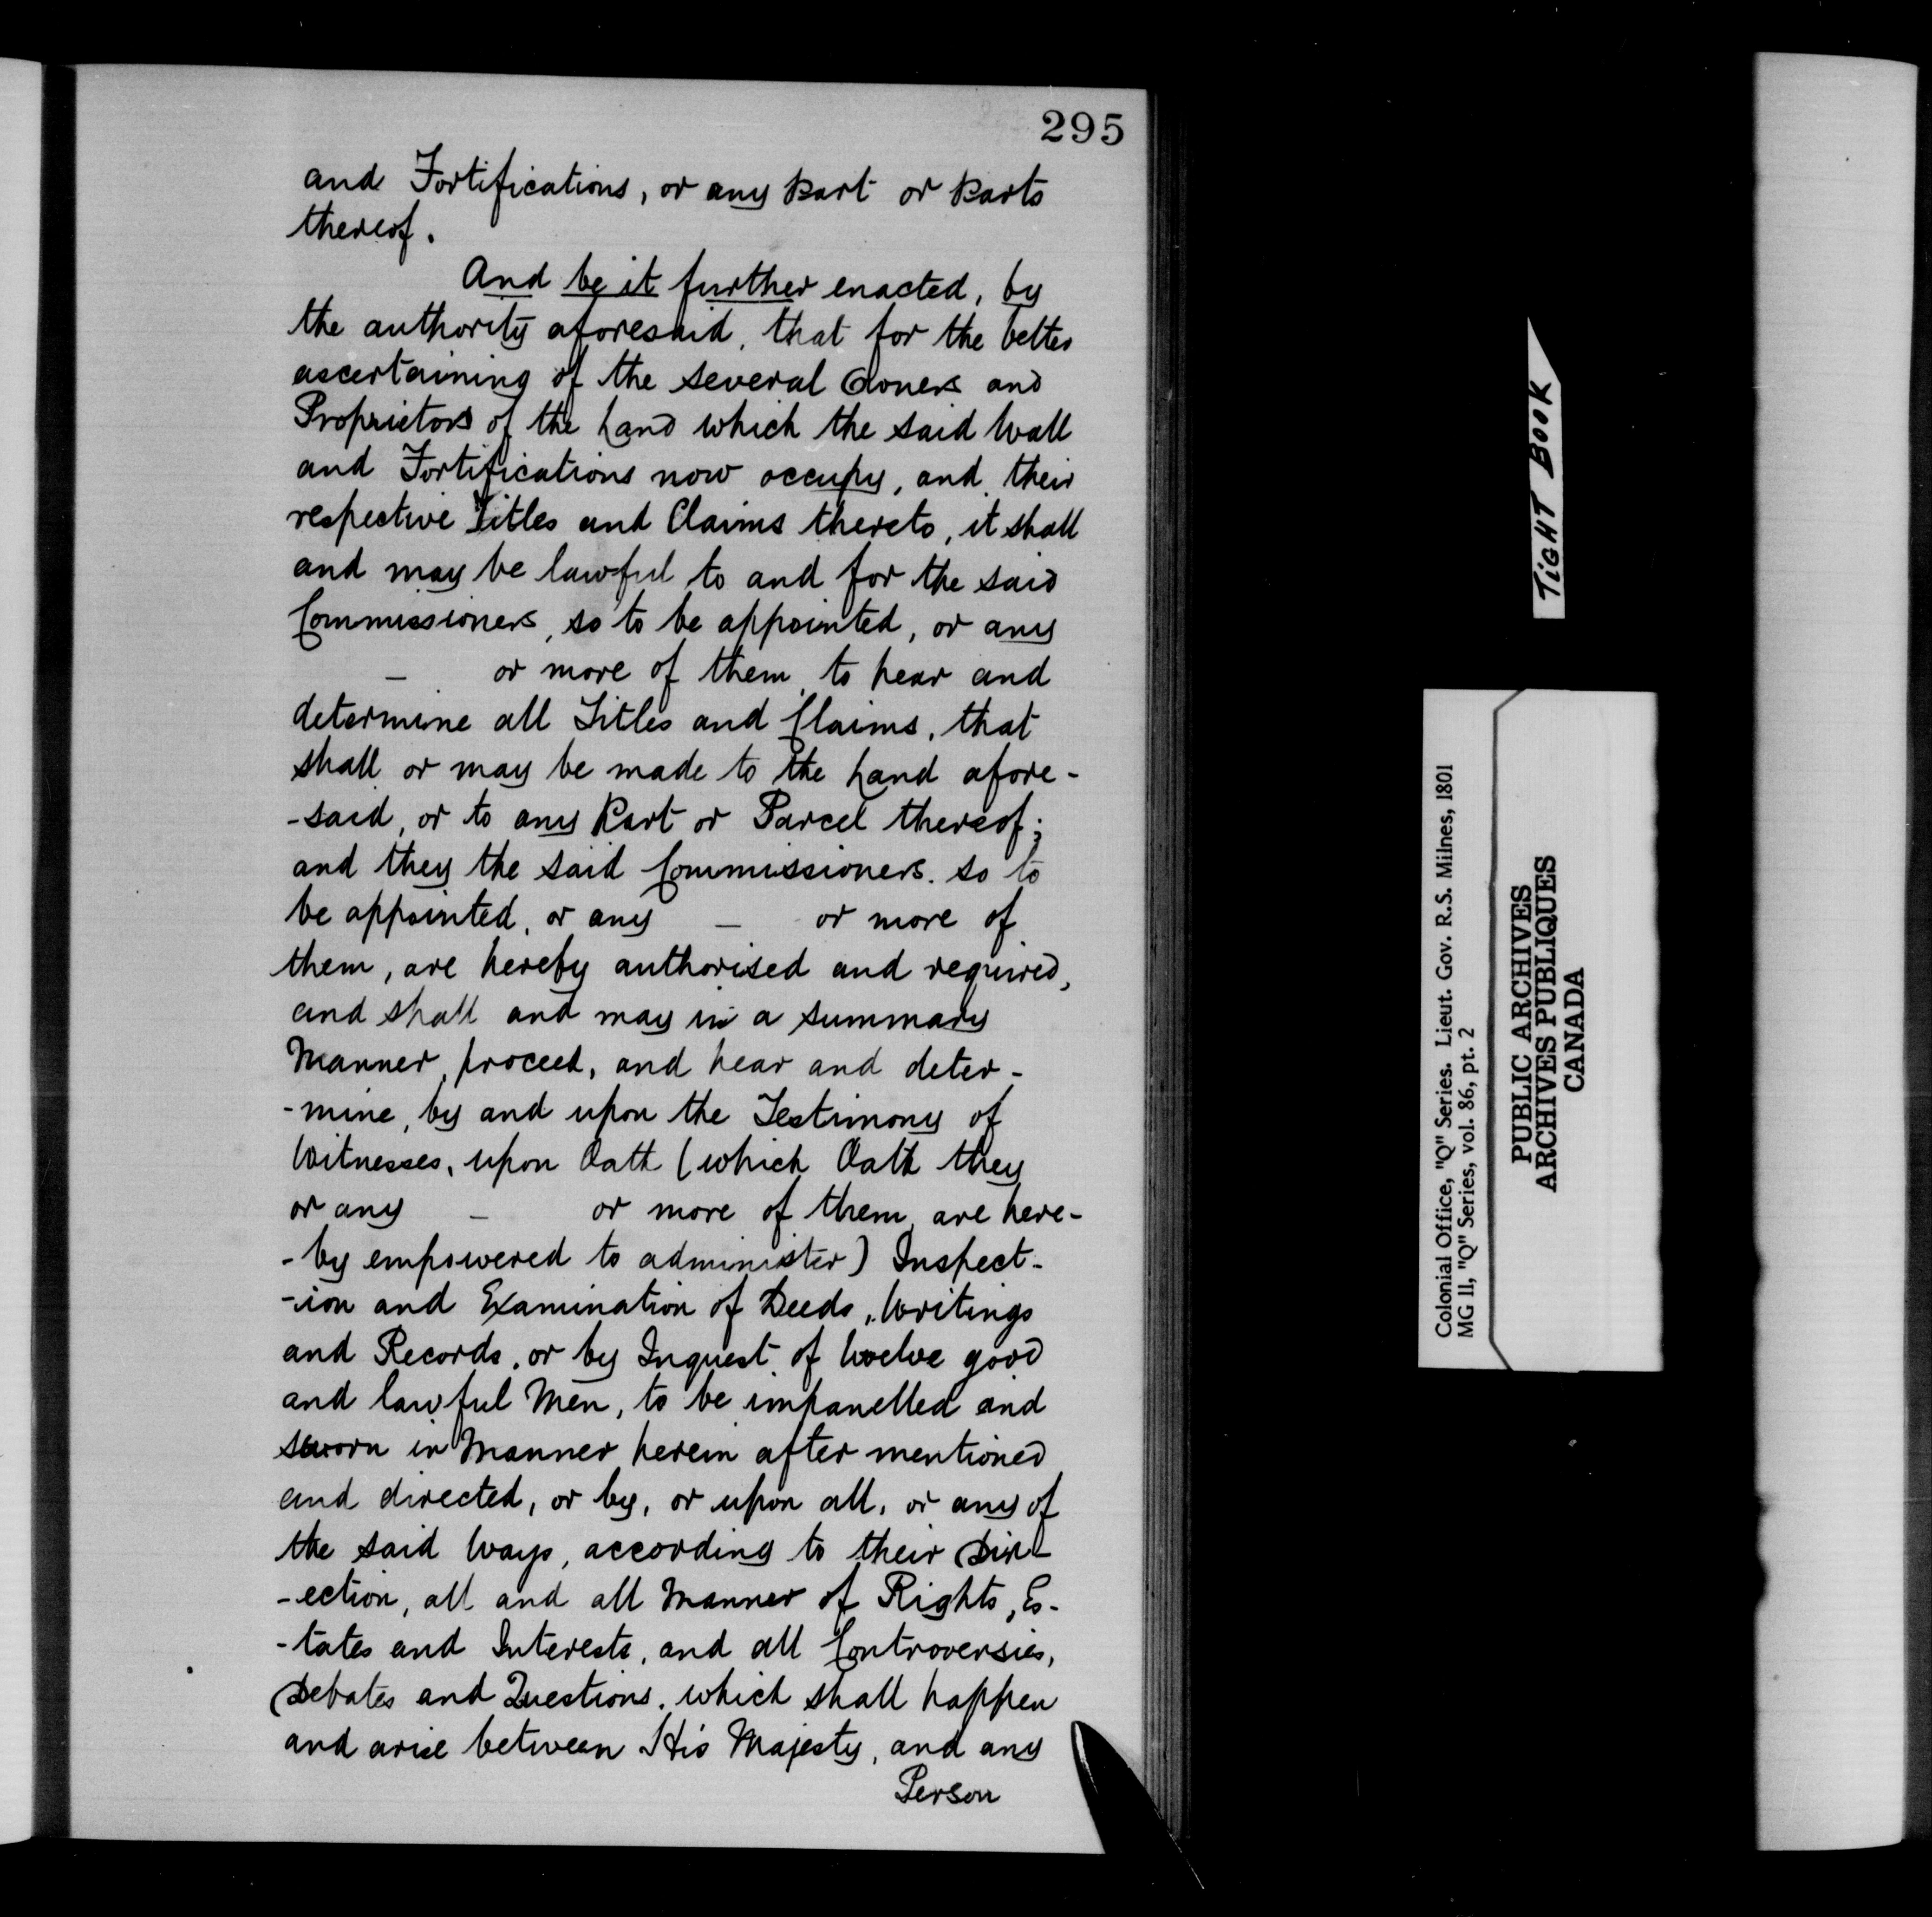 295
and Fortifications, or any Part or Parts
thereof.
And be it further enacted, by
the authority aforesaid, that for the better
ascertaining of the several Owners and
Proprietors of the Land which the said Wall
and Fortifications now occupy, and their
respective Titles and Claims thereto, it shall
and may be lawful to and for the said
Commissioners, so to be appointed, or any
— or more of them, to hear and
determine all Titles and Claims, that
shall or may be made to the Land afore-
-said, or to any Part or Parcel thereof;
and they the said Commissioners. so to
be appointed, or any — or more of
them, are hereby authorised and required,
and shall and may in a summary
Manner, proceed, and hear and deter-
-mine, by and upon the Testimony of
Witnesses, upon Oath (which Oath they
or any — or more of them, are here-
-by empowered to administer) Inspect-
-ion and Examination of Deeds, Writings
and Records, or by Inquest of twelve good
and lawful Men, to be impanelled and
sworn in Manner herein after mentioned
and directed, or by, or upon all, or any of
the said Ways, according to their Dir-
-ection, all and all Manner of Rights, Es-
-tates and Interests, and all Controversies,
Debates and Questions, which shall happen
and arise between His Majesty, and any
Person
TIGHT BOOK
Colonial Office, "Q" Series. Lieut. Gov. R.S. Milnes, 1801
MG 11, "Q" Series, vol. 86, pt. 2
PUBLIC ARCHIVES
ARCHIVES PUBLIQUES
CANADA